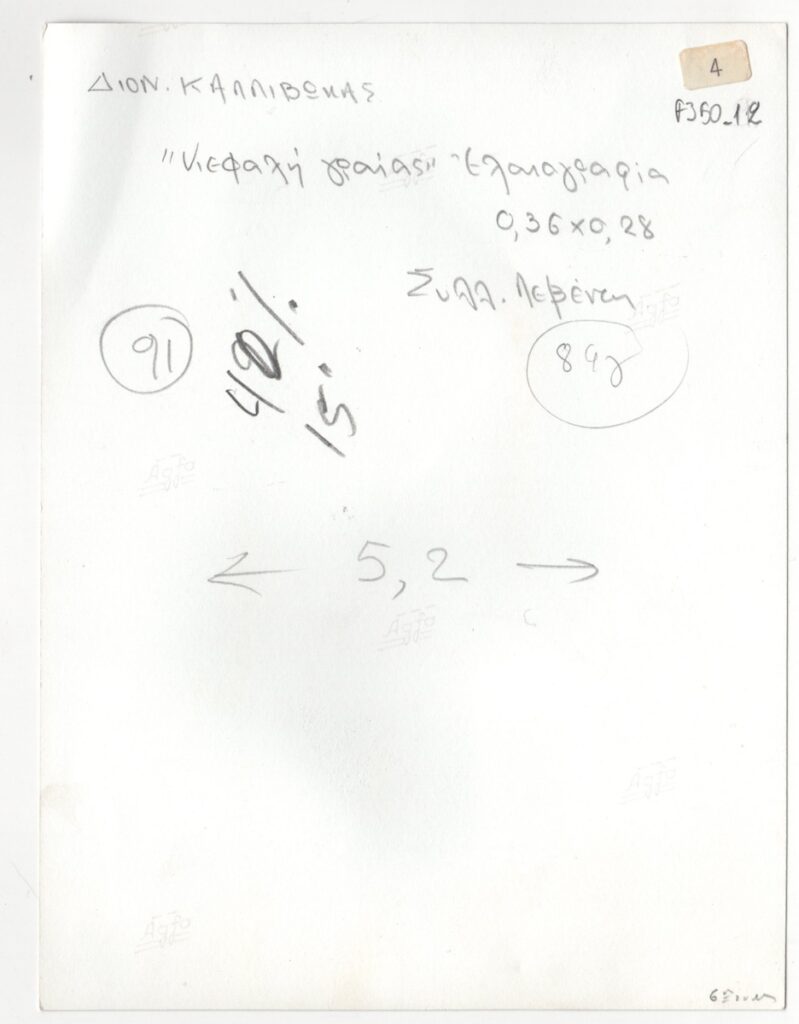 4
F350_12
ΔΙΟΝ. ΚΑΛΛΙΒΩΚΑΣ
"Κεφαλή γραίας" Ελαιογραφία
0,36×0,28
Συλλ. Λεβέντη
91
42%
15
84γ
← 5,2 →
Agfa
Agfa
Agfa
Agfa
Agfa